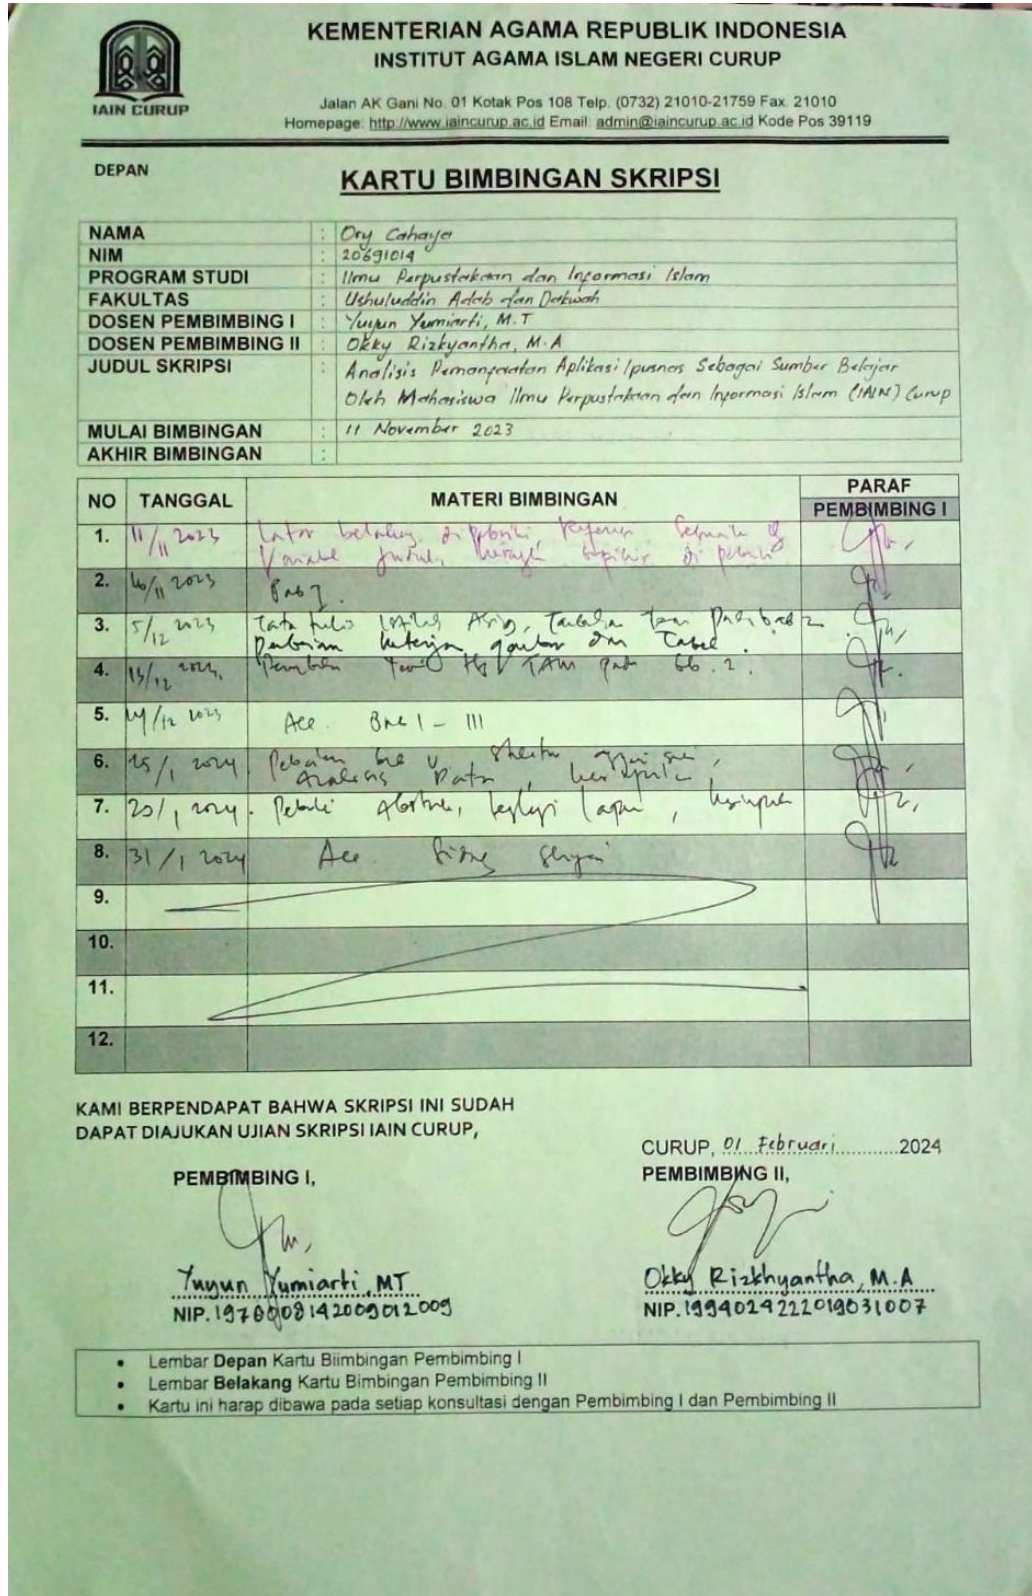 KEMENTERIAN AGAMA REPUBLIK INDONESIA
INSTITUT AGAMA ISLAM NEGERI CURUP
IAIN CURUP
Jalan AK Gani No. 01 Kotak Pos 108 Telp. (0732) 21010-21759 Fax. 21010
Homepage: http://www.iaincurup.ac.id Email: admin@iaincurup.ac.id Kode Pos 39119
DEPAN
KARTU BIMBINGAN SKRIPSI
NAMA : Ory Cahaya
NIM : 20691014
PROGRAM STUDI : Ilmu Perpustakaan dan Informasi Islam
FAKULTAS : Ushuluddin Adab dan Dakwah
DOSEN PEMBIMBING I : Yuyun Yumiarti, M.T
DOSEN PEMBIMBING II : Okky Rizkyantha, M.A
JUDUL SKRIPSI : Analisis Pemanfaatan Aplikasi Ipusnas Sebagai Sumber Belajar
Oleh Mahasiswa Ilmu Perpustakaan dan Informasi Islam (IAIN) Curup
MULAI BIMBINGAN : 11 November 2023
AKHIR BIMBINGAN :
NO TANGGAL MATERI BIMBINGAN PARAF
PEMBIMBING I
1. 11/11 2023 Latar belakang
Variabel judul
2. 2023 Bab I.
3. 5/12 2023 Tata tulis
gambar dan Tabel.
4. 13/12 TAM
5. 2023 Acc Bab I - III
6. 2024
Analisis Data
7. 2024
8. 31/1 2024 Acc
9.
10.
11.
12.
KAMI BERPENDAPAT BAHWA SKRIPSI INI SUDAH
DAPAT DIAJUKAN UJIAN SKRIPSI IAIN CURUP,
CURUP, 01 Februari 2024
PEMBIMBING I,
PEMBIMBING II,
Yuyun Yumiarti, MT
Okky Rizkhyantha, M.A
NIP.
NIP. 199402422 2019031007
• Lembar Depan Kartu Biimbingan Pembimbing I
• Lembar Belakang Kartu Bimbingan Pembimbing II
• Kartu ini harap dibawa pada setiap konsultasi dengan Pembimbing I dan Pembimbing II